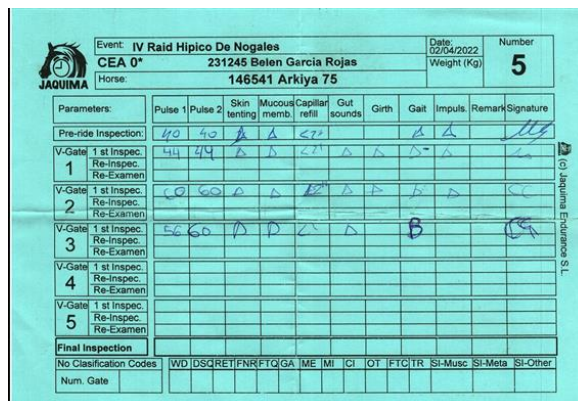 Event: IV Raid Hipico De Nogales Date: 02/04/2022 Number
CEA 0* 231245 Belen Garcia Rojas Weight (Kg) 5
Horse: 146541 Arkiya 75
JAQUIMA
Parameters: Pulse 1 Pulse 2 Skin tenting Mucous memb. Capillar refill Gut sounds Girth Gait Impuls. Remark Signature
Pre-ride Inspection: 40 40 A A A A
V-Gate 1 1 st Inspec. 44 44 A A A A A- A
Re-Inspec.
Re-Examen
V-Gate 2 1 st Inspec. 60 60 A A A A A A
Re-Inspec.
Re-Examen
V-Gate 3 1 st Inspec. 56 60 A A A B
Re-Inspec.
Re-Examen
V-Gate 4 1 st Inspec.
Re-Inspec.
Re-Examen
V-Gate 5 1 st Inspec.
Re-Inspec.
Re-Examen
Final Inspection
No Clasification Codes WD DSQ RET FNR FTQ GA ME MI CI OT FTC TR SI-Musc SI-Meta SI-Other
Num. Gate
(c) Jaquima Endurance S.L.